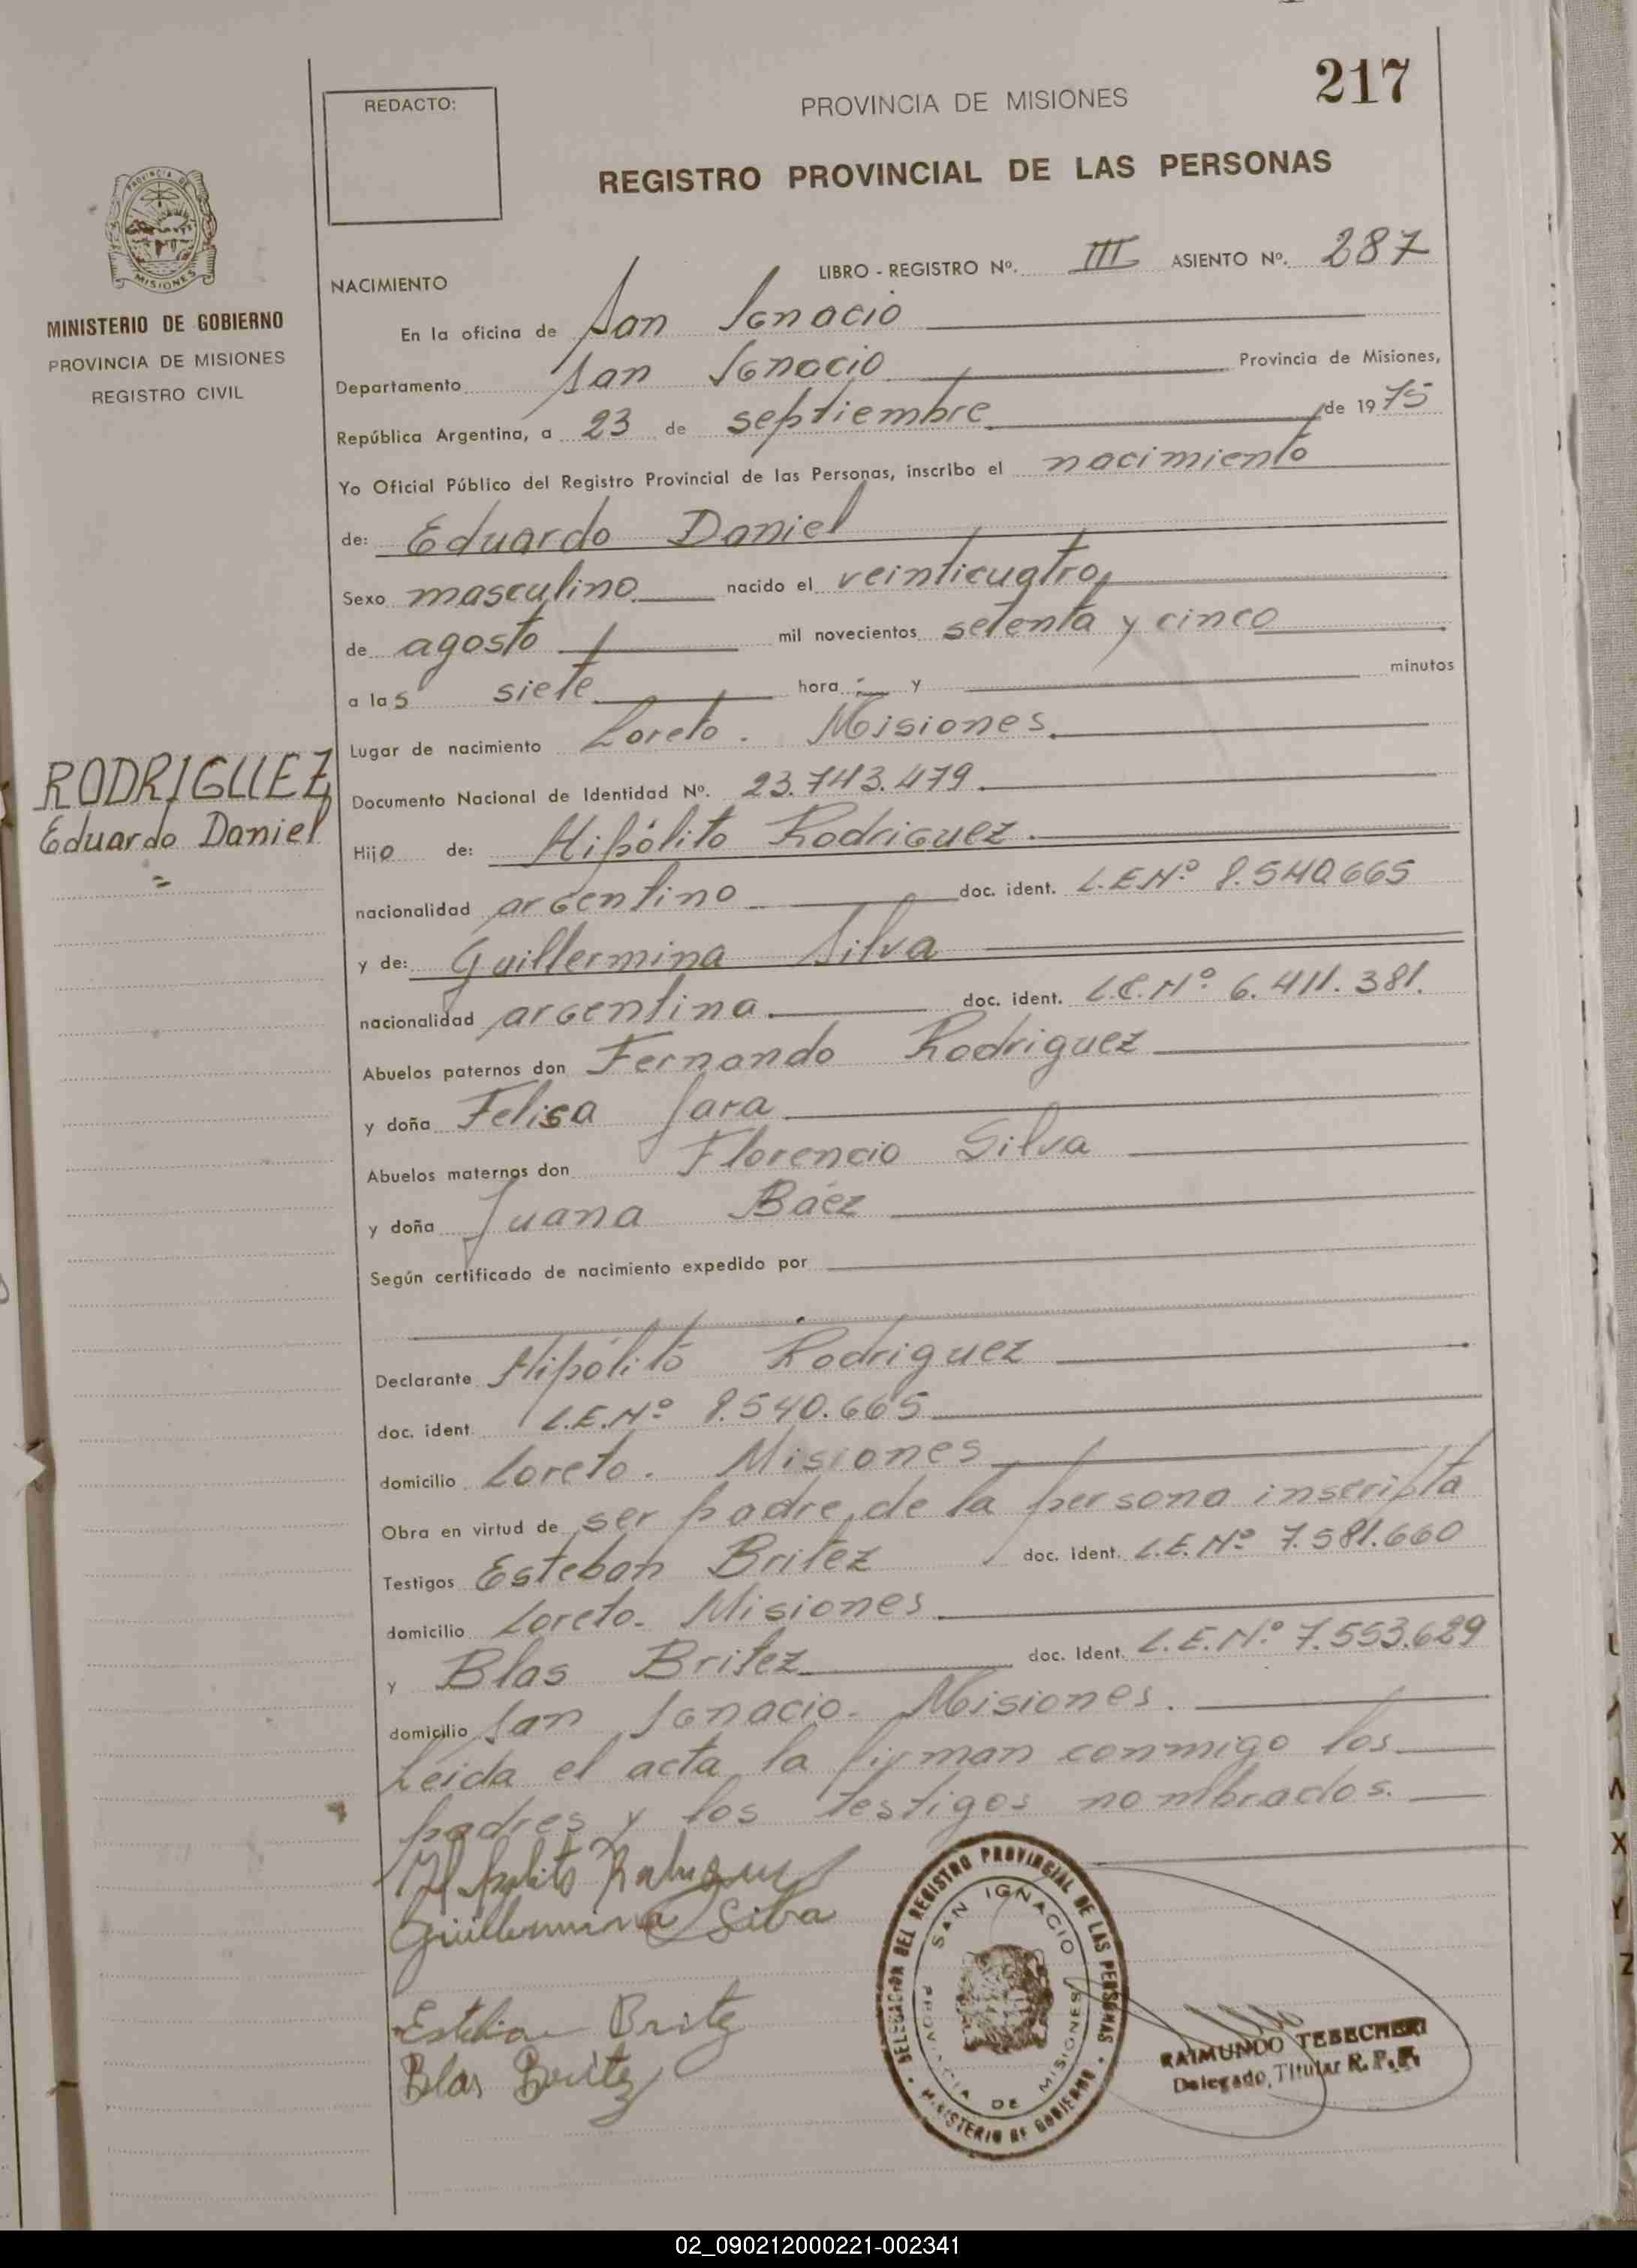 217
REDACTO:
PROVINCIA DE MISIONES
REGISTRO PROVINCIAL DE LAS PERSONAS
PROVINCIA DE
MISIONES
MINISTERIO DE GOBIERNO
PROVINCIA DE MISIONES
REGISTRO CIVIL
LIBRO - REGISTRO Nº. III ASIENTO Nº. 287
NACIMIENTO
En la oficina de San Ignacio
Departamento San Ignacio Provincia de Misiones,
República Argentina, a 23 de septiembre de 1975
Yo Oficial Público del Registro Provincial de las Personas, inscribo el nacimiento
de: Eduardo Daniel
Sexo masculino nacido el veinticuatro
de agosto mil novecientos setenta y cinco
a las siete hora y minutos
Lugar de nacimiento Loreto. Misiones.
RODRIGUEZ
Eduardo Daniel
Documento Nacional de Identidad Nº. 23.743.479.
Hijo de: Hipólito Rodriguez.
nacionalidad argentino doc. ident. L.E.Nº 8.540.665
y de: Guillermina Silva
nacionalidad argentina. doc. ident. L.C.Nº 6.411.381.
Abuelos paternos don Fernando Rodriguez
y doña Felisa Jara
Abuelos maternos don Florencio Silva
y doña Juana Báez
Según certificado de nacimiento expedido por
Declarante Hipólito Rodriguez
doc. ident. L.E.Nº 8.540.665
domicilio Loreto. Misiones
Obra en virtud de ser padre de la persona inscripta
Testigos Esteban Britez doc. ident. L.E.Nº 7.581.660
domicilio Loreto. Misiones.
y Blas Britez doc. Ident. L.E.Nº 7.553.629
domicilio San Ignacio. Misiones.
Leida el acta la firman conmigo los
padres y los testigos nombrados.
Guillermina Silva
Esteban Britez
Blas Britez
DELEGACION DEL REGISTRO PROVINCIAL DE LAS PERSONAS
MINISTERIO DE GOBIERNO
SAN IGNACIO
PROVINCIA DE MISIONES
RAIMUNDO TEBECHERI
Delegado Titular R.P.P.
X
Y
Z
02_090212000221-002341